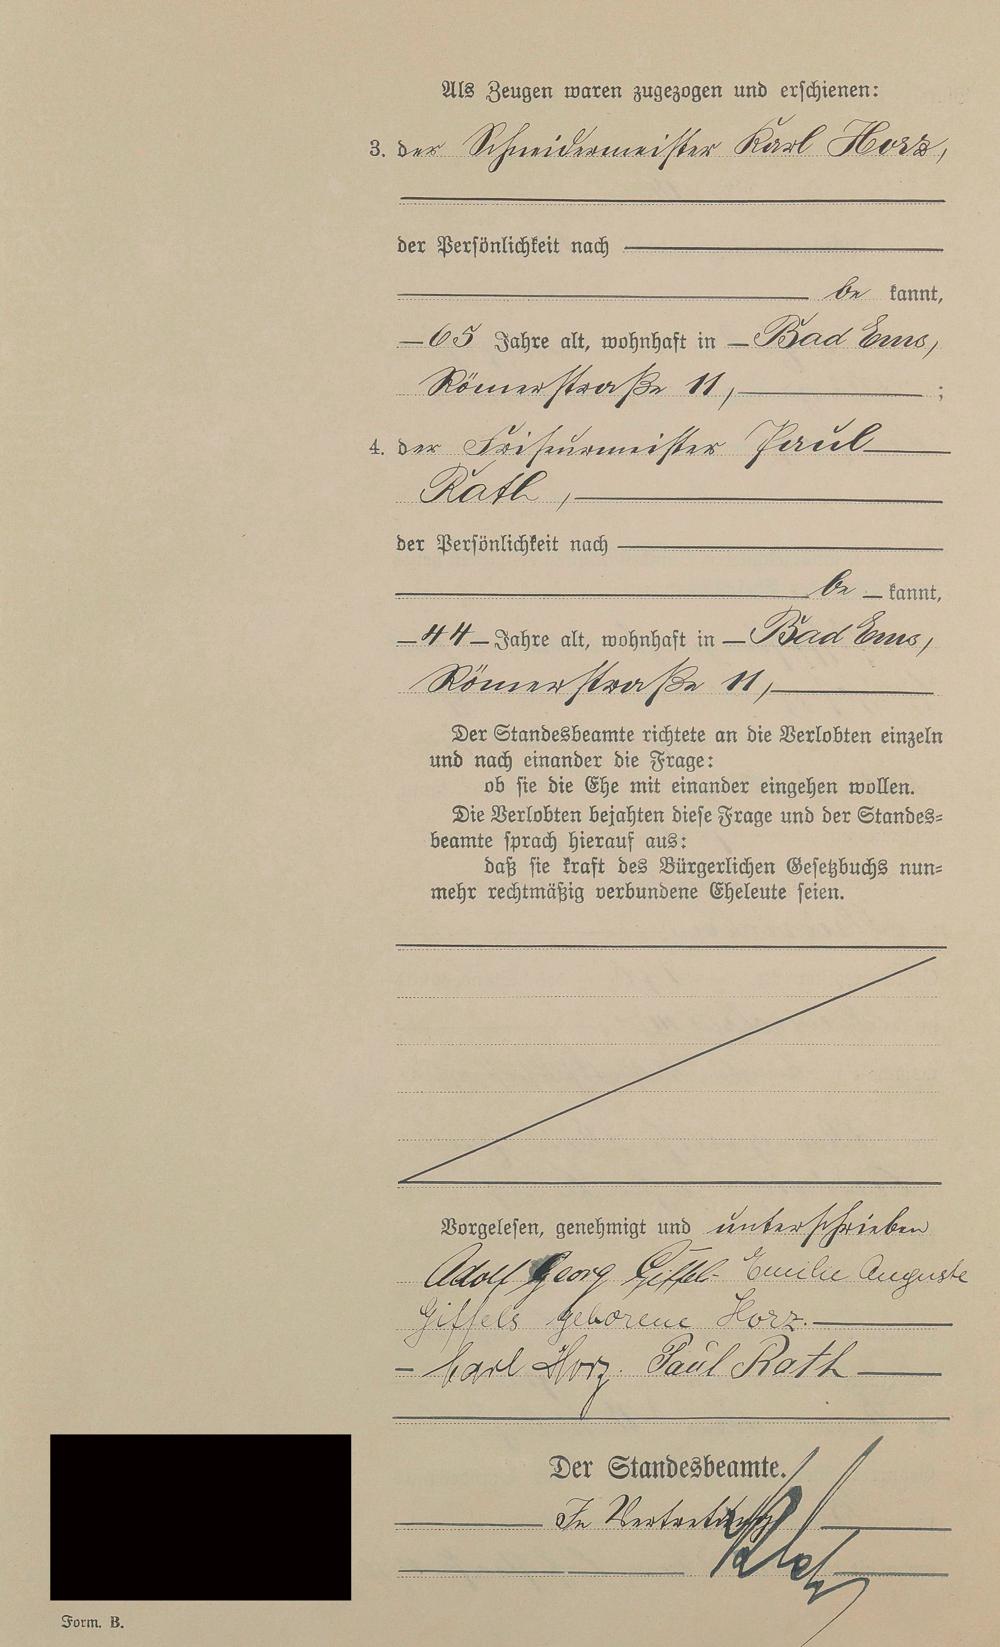 Als Zeugen waren zugezogen und erschienen:
3. der Schneidermeister Karl Horz,
der Persönlichkeit nach
be kannt,
65 Jahre alt, wohnhaft in Bad Ems,
Römerstraße 11, ;
4. der Friseurmeister Paul
Rath,
der Persönlichkeit nach
be kannt,
44 Jahre alt, wohnhaft in Bad Ems,
Römerstraße 11,
Der Standesbeamte richtete an die Verlobten einzeln
und nach einander die Frage:
ob sie die Ehe mit einander eingehen wollen.
Die Verlobten bejahten diese Frage und der Standes=
beamte sprach hierauf aus:
daß sie kraft des Bürgerlichen Gesetzbuchs nun=
mehr rechtmäßig verbundene Eheleute seien.
Vorgelesen, genehmigt und unterschrieben
Adolf Georg Giffels Emilie Auguste
Giffels geborene Horz.
Carl Horz. Paul Rath
Der Standesbeamte.
In Vertretung
Form. B.